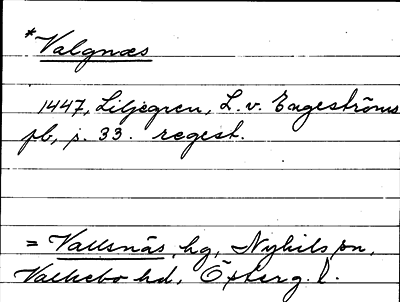 *Valgnæs
1447, Liljegren, L. v. Engeströms
pb, s. 33. regest.
= Vallsnäs, hg, Nykils sn,
Valkebo hd, Österg. l.